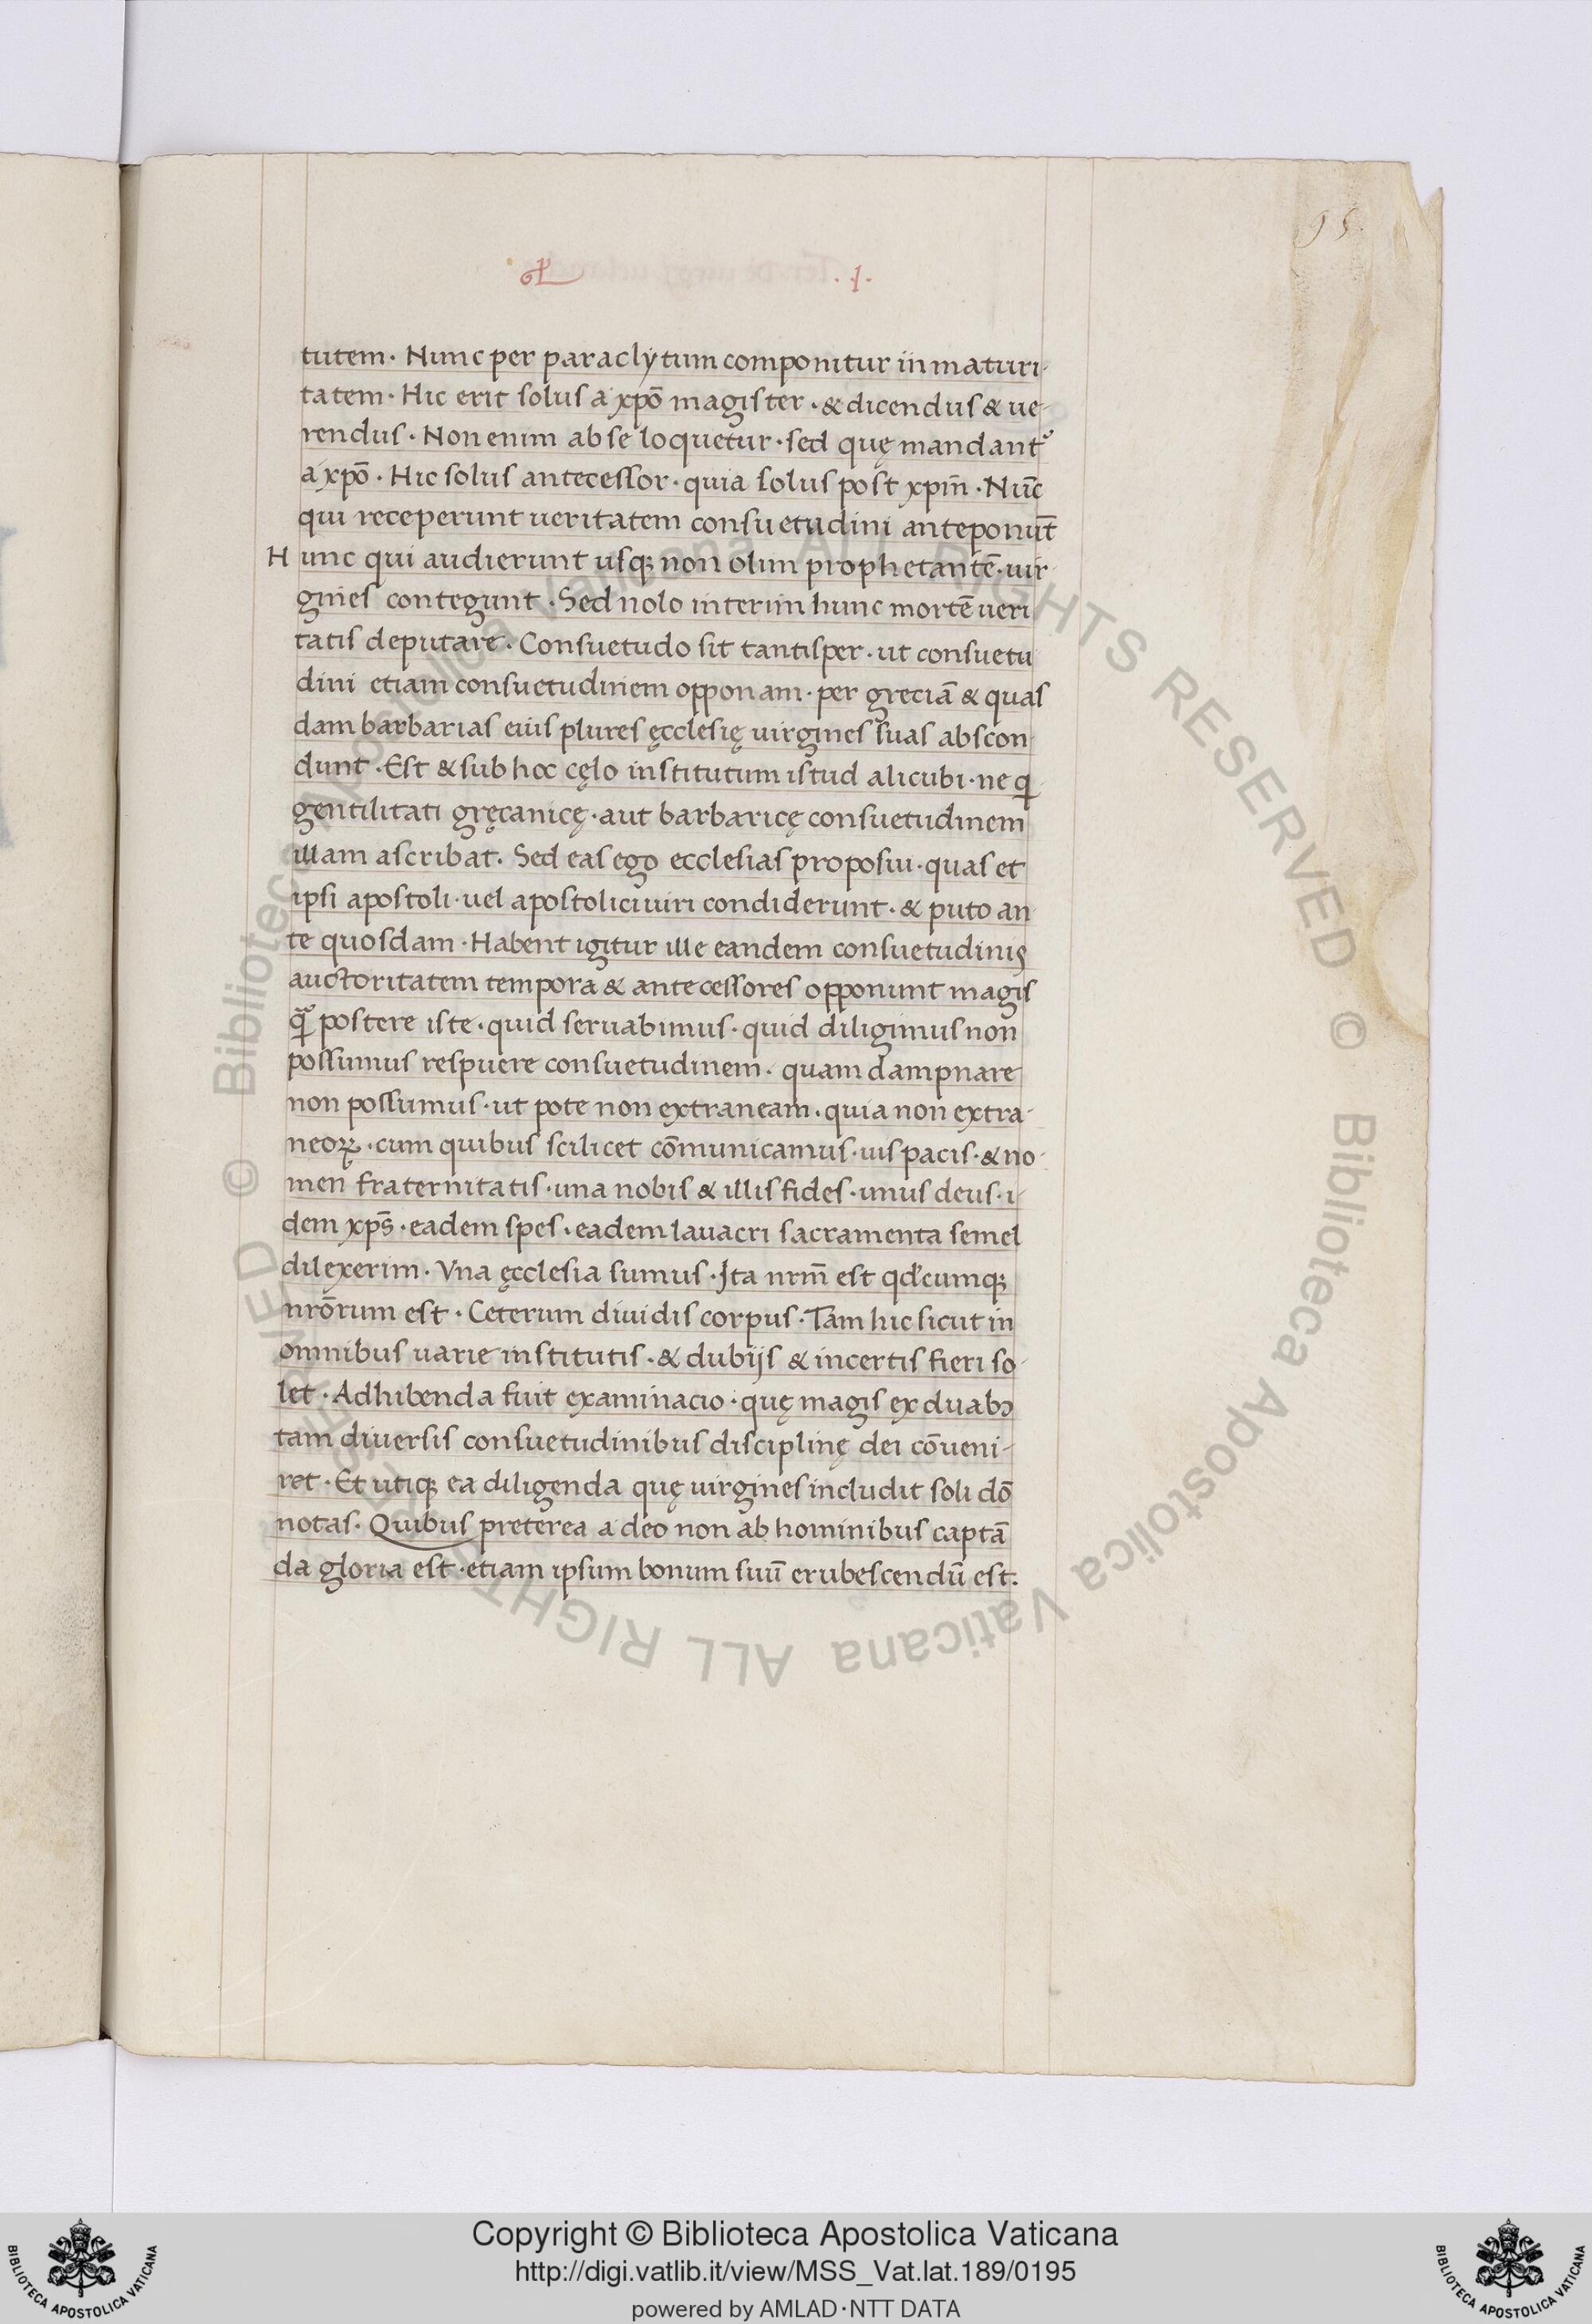 95
.I.
tutem · Nunc per paraclytum componitur in maturi-
tatem · Hic erit solus a xp̄o magister · & dicendus & ue-
rendus · Non enim ab se loquetur · sed quę mandant᷑
a xp̄o · Hic solus antecessor · quia solus post xpm̄ · Nūc
qui receperunt ueritatem consuetudini anteponūt
Hunc qui audierunt usq; non olim prophetantē · uir-
gines contegunt · Sed nolo interim hunc mortē ueri
tatis deputare · Consuetudo sit tantisper · ut consuetu
dini etiam consuetudinem opponam · per greciā & quas
dam barbarias eius plures ęcclesię uirgines suas abscon-
dunt · Est & sub hoc cęlo institutum istud alicubi · ne q̄
gentilitati gręcanicę · aut barbaricę consuetudinem
illam ascribat. Sed eas ego ecclesias proposui · quas et
ipsi apostoli · uel apostolici uiri condiderunt · & puto an
te quosdam · Habent igitur ille eandem consuetudinis
auctoritatem tempora & antecessores opponunt magis
quā postere iste · quid seruabimus · quid diligimus non
possumus respuere consuetudinem · quam dampnare
non possumus · ut pote non extraneam · quia non extra-
neoꝝ · cum quibus scilicet cōmunicamus · uis pacis · & no-
men fraternitatis · una nobis & illis fides · unus deus · i-
dem xp̄s · eadem spes · eadem lauacri sacramenta semel
dilexerim · Vna ęcclesia sumus · Ita nrm̄ est qd̓cumq;
nrōrum est · Ceterum diuidis corpus · Tam hic sicut in
omnibus uarie institutis · & dubijs & incertis fieri so-
let · Adhibenda fuit examinacio · quę magis ex duabꝰ
tam diuersis consuetudinibus disciplinę dei cōueni-
ret · Et utiq; ea diligenda quę uirgines includit soli dō
notas · Quibus preterea a deo non ab hominibus captā
da gloria est · etiam ipsum bonum suū erubescendū est.
© Biblioteca Apostolica Vaticana ALL RIGHTS RESERVED © Biblioteca Apostolica Vaticana ALL RIGHTS RESERVED
Copyright © Biblioteca Apostolica Vaticana
http://digi.vatlib.it/view/MSS_Vat.lat.189/0195
powered by AMLAD·NTT DATA
BIBLIOTECA APOSTOLICA VATICANA
BIBLIOTECA APOSTOLICA VATICANA